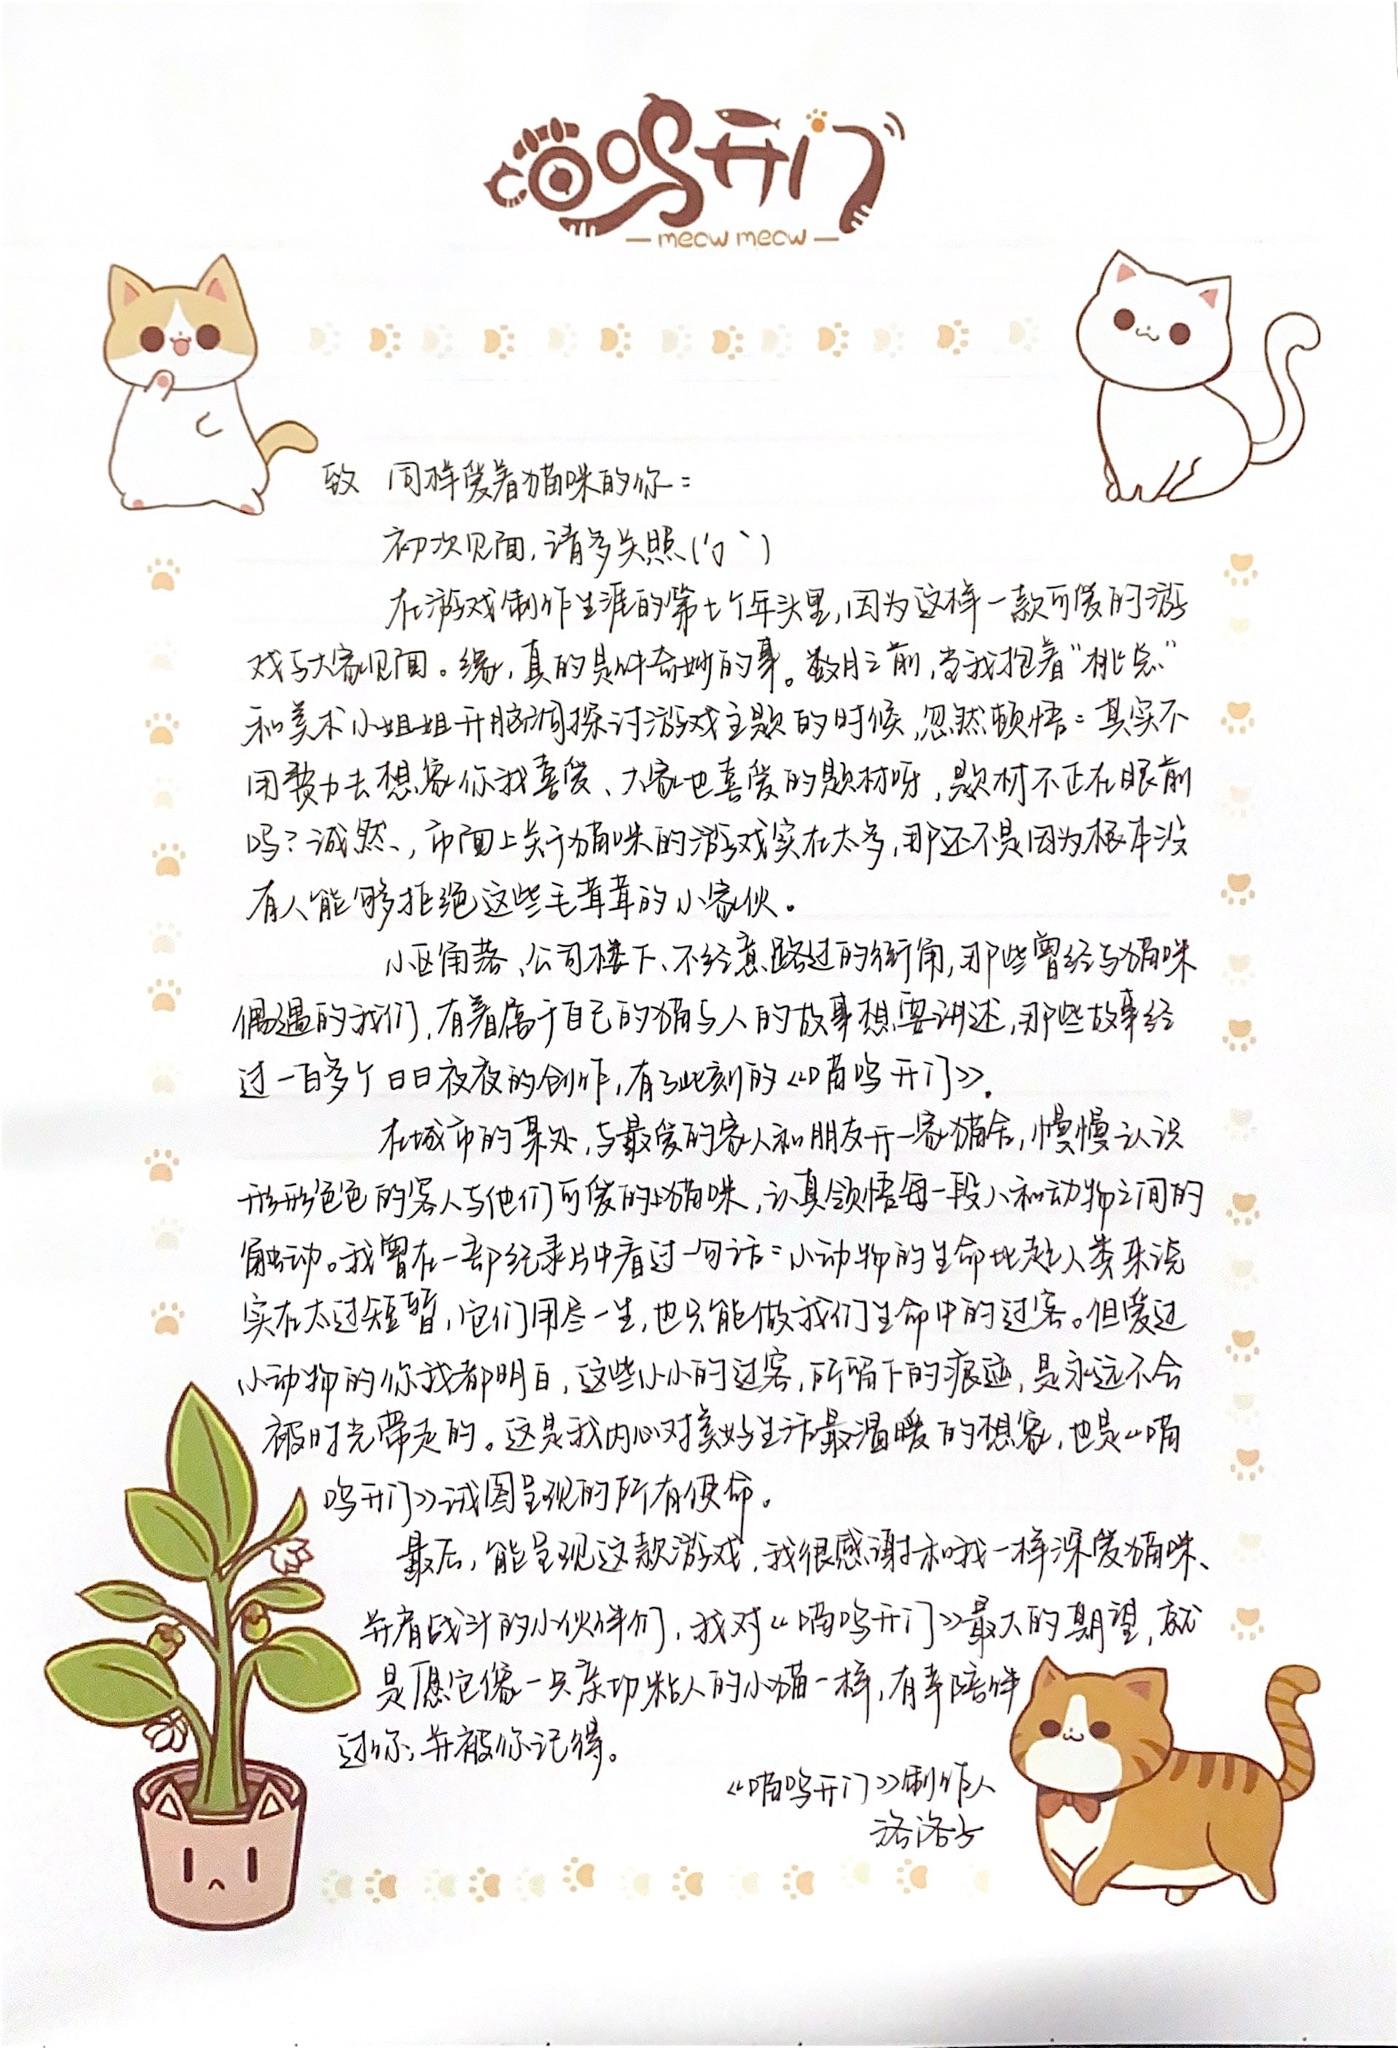 喵呜开门
meow meow
致 同样爱着猫咪的你：
初次见面，请多关照（'ο｀）
在游戏制作生涯的第七个年头里，因为这样一款可爱的游
戏与大家见面。缘，真的是件奇妙的事。数月之前，当我抱着“桃总”
和美术小姐姐开脑洞探讨游戏主题的时候，忽然顿悟：其实不
用费力去想象你我喜爱、大家也喜爱的题材呀，题材不正在眼前
吗？诚然，市面上关于猫咪的游戏实在太多，那还不是因为根本没
有人能够拒绝这些毛茸茸的小家伙。
小区角落、公司楼下、不经意路过的街角，那些曾经与猫咪
偶遇的我们，有着属于自己的猫与人的故事想要讲述，那些故事经
过一百多个日日夜夜的创作，有了此刻的《喵呜开门》。
在城市的某处，与最爱的家人和朋友开一家猫舍，慢慢认识
形形色色的客人与他们可爱的猫咪，认真领悟每一段人和动物之间的
触动。我曾在一部纪录片中看过一句话：小动物的生命比起人类来说
实在太过短暂，它们用尽一生，也只能做我们生命中的过客。但爱过
小动物的你我都明白，这些小小的过客，所留下的痕迹，是永远不会
被时光带走的。这是我内心对美好生活最温暖的想象，也是《喵
呜开门》试图呈现的所有使命。
最后，能呈现这款游戏，我很感谢和我一样深爱猫咪、
并肩战斗的小伙伴们，我对《喵呜开门》最大的期望，就
是愿它像一只亲切粘人的小猫一样，有幸陪伴
过你，并被你记得。
《喵呜开门》制作人
洛洛子